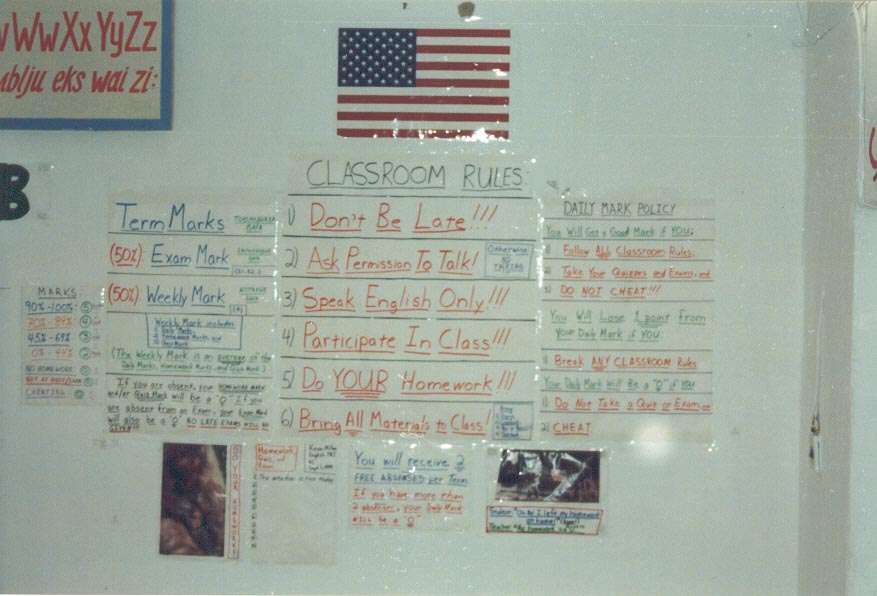 wWwXxYyZz
ublju eks wai zi:
B
CLASSROOM RULES:
1) Don't Be Late!!!
2) Ask Permission To Talk!
Otherwise
NO
TALKING
3) Speak English Only!!!
4) Participate In Class!!!
5) Do YOUR Homework!!!
6) Bring All Materials to Class!
Term Marks
(50%) Exam Mark
(50%) Weekly Mark
Weekly Mark includes
(The Weekly Mark is an average of the
Daily Marks, Homework Marks, and Quiz Mark)
If you are absent, your HOMEWORK MARK
and/or Quiz Mark will be a "0" If you
are absent from an Exam, your Exam Mark
will also be a "0" NO LATE EXAMS WILL BE
GIVEN!!!
MARKS
90%-100% 5
70%-89% 4
45%-69% 3
0%-44% 2
NO HOMEWORK
CHEATING
DAILY MARK POLICY
You Will Get a Good Mark if YOU:
1) Follow All Classroom Rules,
2) Take Your Quizzes and Exams, and
3) DO NOT CHEAT!!!
You Will Lose 1 point From
your Daily Mark if YOU:
1) Break ANY CLASSROOM Rules
Your Daily Mark Will Be a "0" if YOU
1) Do Not Take a Quiz or Exam, or
2) CHEAT
DO YOUR HOMEWORK!
Homework,
Quiz, and
Exam
The weather is nice today
You will receive 2
FREE ABSENSES per Term
If you have more than
2 absenses, your Daily Mark
WILL be a "0"
Student: "Oh No! I left my homework
at home!"
Teacher: "No homework